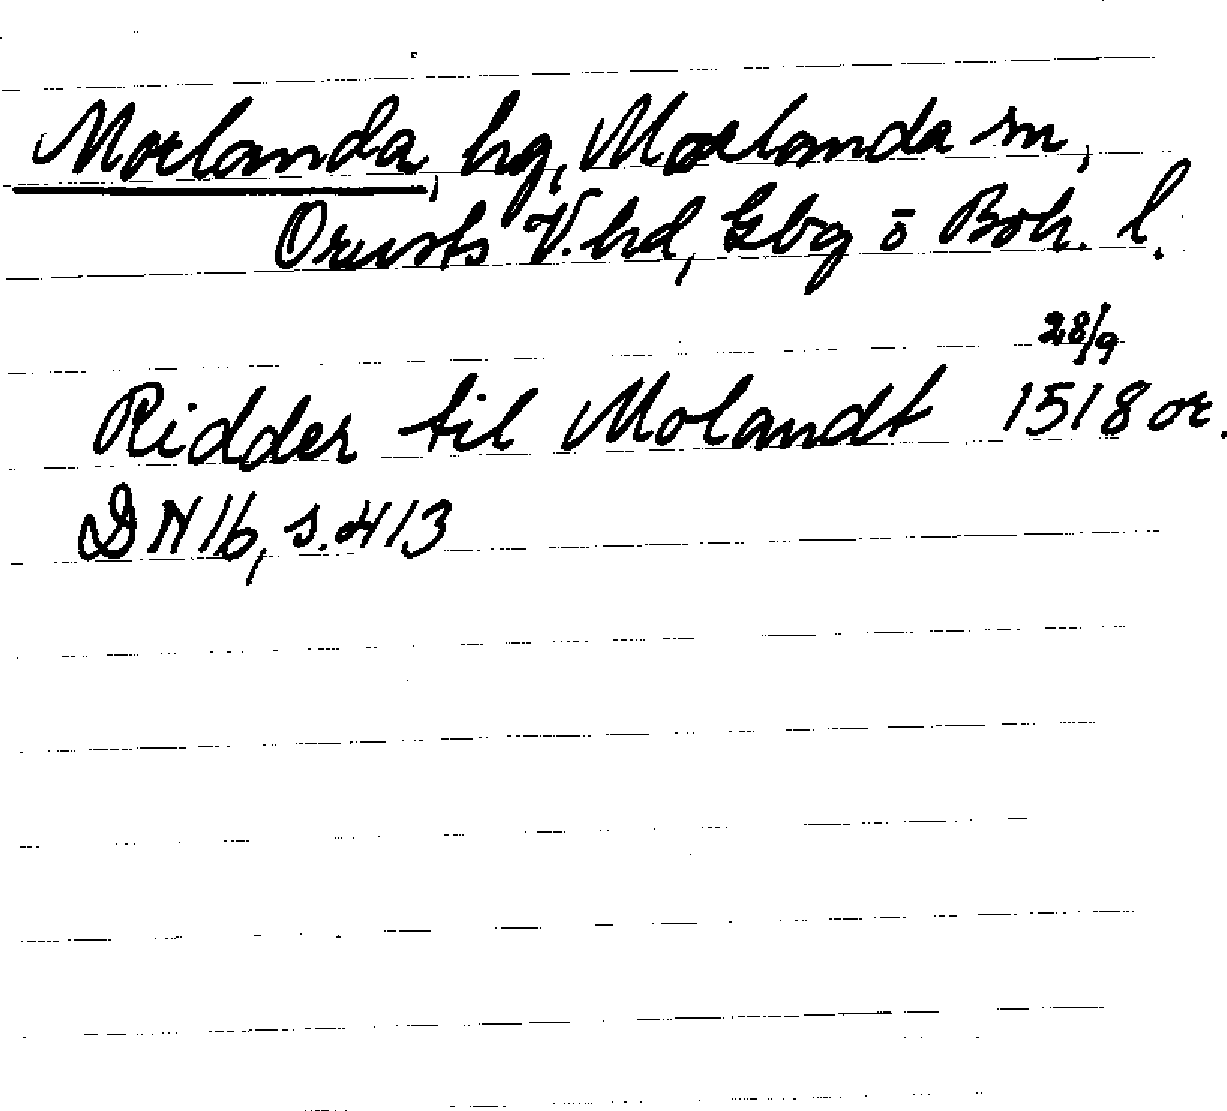 Morlanda, hg, Morlanda sn,
Orusts V. hd, Gbg o Boh. l.
28/9
Ridder til Molandt 1518 or.
DN 16, s. 413